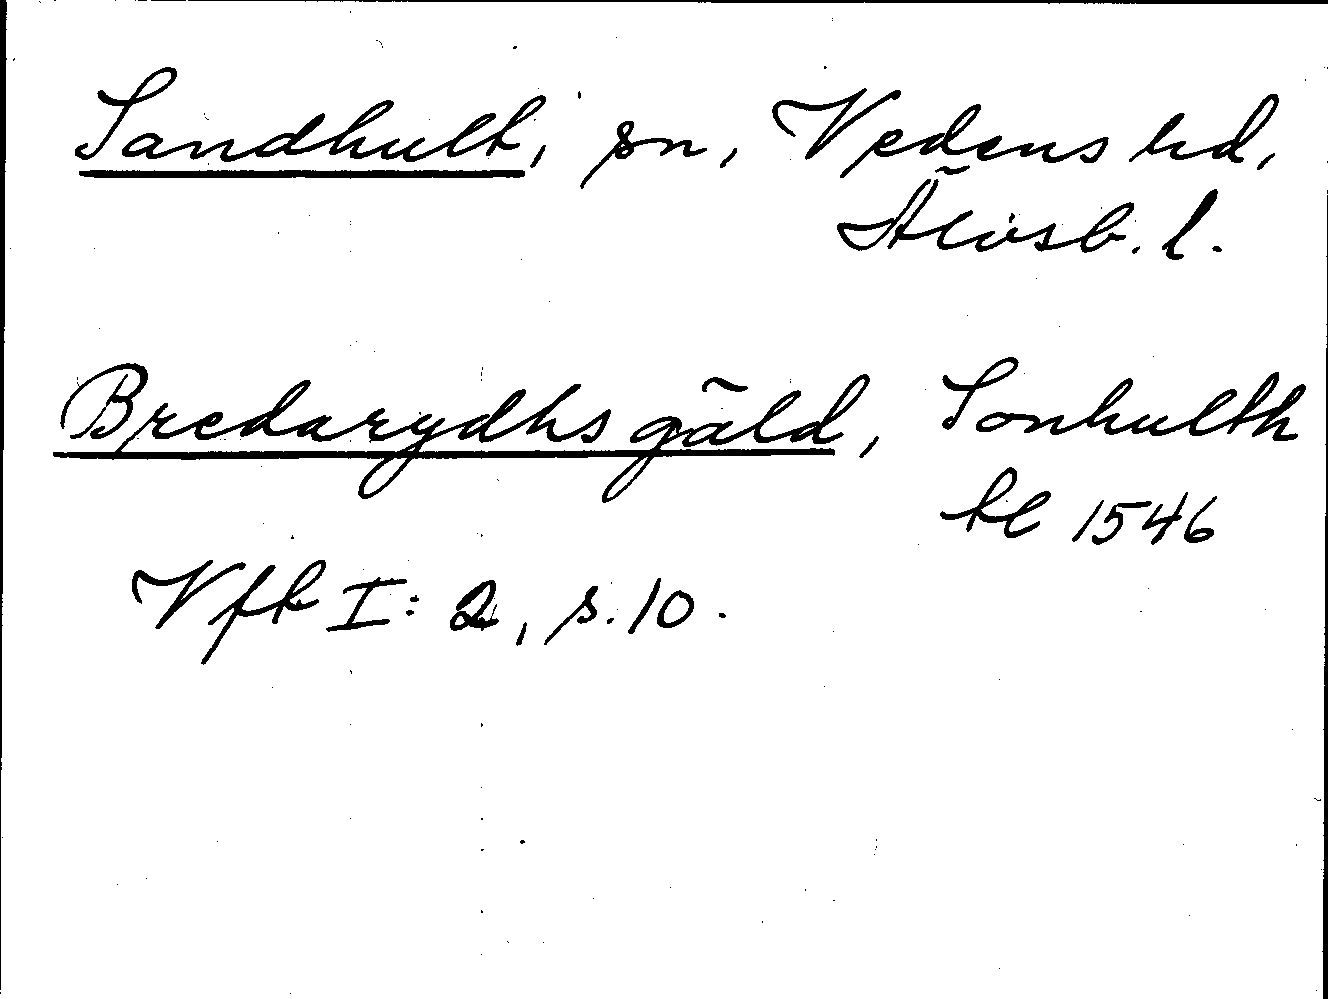 Sandhult, sn, Vedens hd,
Älvsb. l.
Bredarydhs gäld, Sonhulth
kl 1546
Vfk I: 2, s. 10.